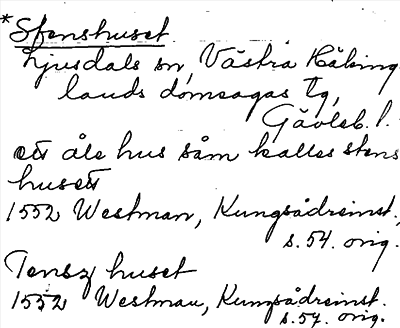 *Stenshuset
Ljusdals sn, Västra Hälsing
lands domsagas tg,
Gävleb. l.
ett åle hus såm kalles stens
husett
1552 Westman, Kungsådreinst.,
s. 54. orig.
Tensz huset
1552 Westman, Kungsådreinst.
s. 57. orig.